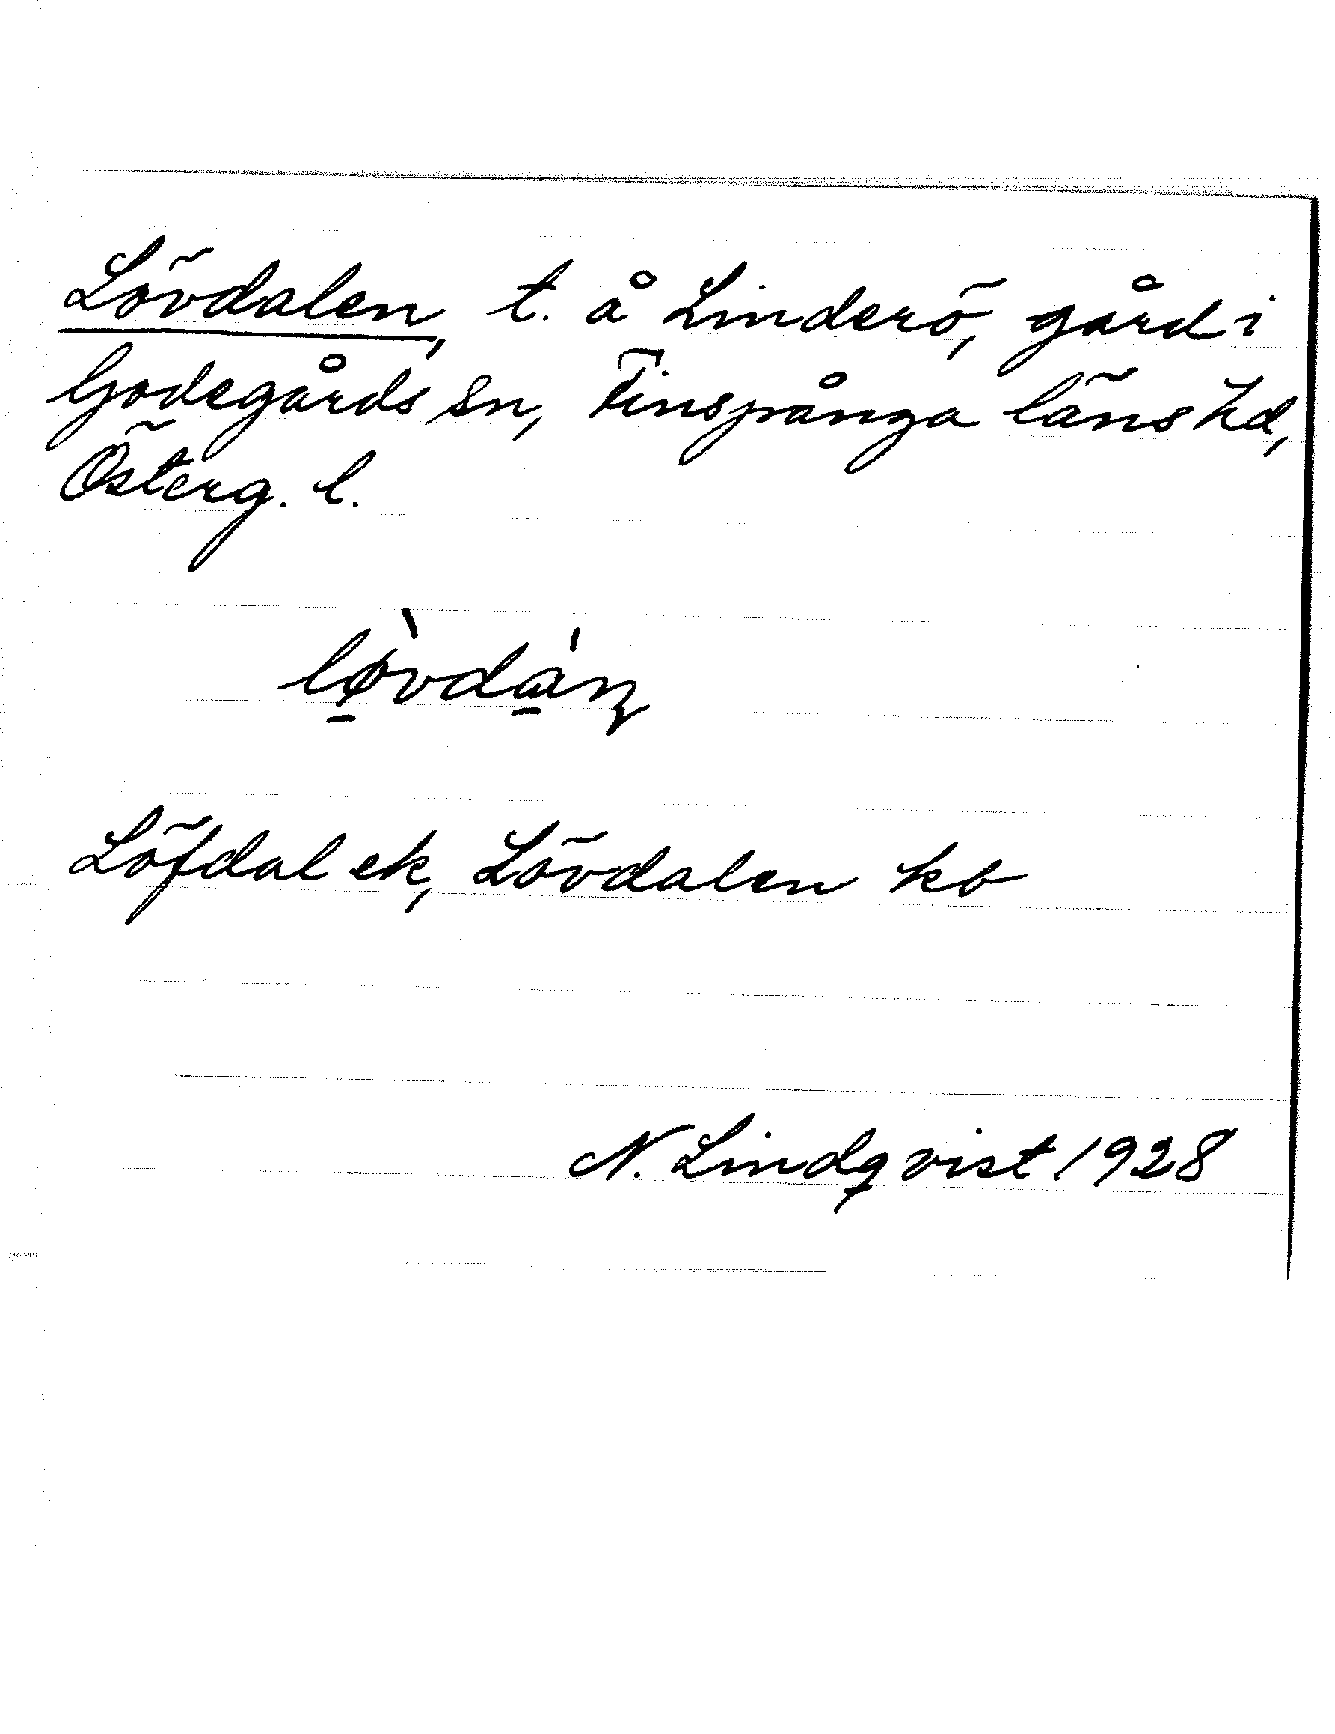 Lövdalen, t. å Linderö, gård i
Godegårds sn, Finspånga läns hd,
Österg. l.
lø̠̀vdá̠ɳ
Löfdal ek, Lövdalen kb
N. Lindqvist 1928